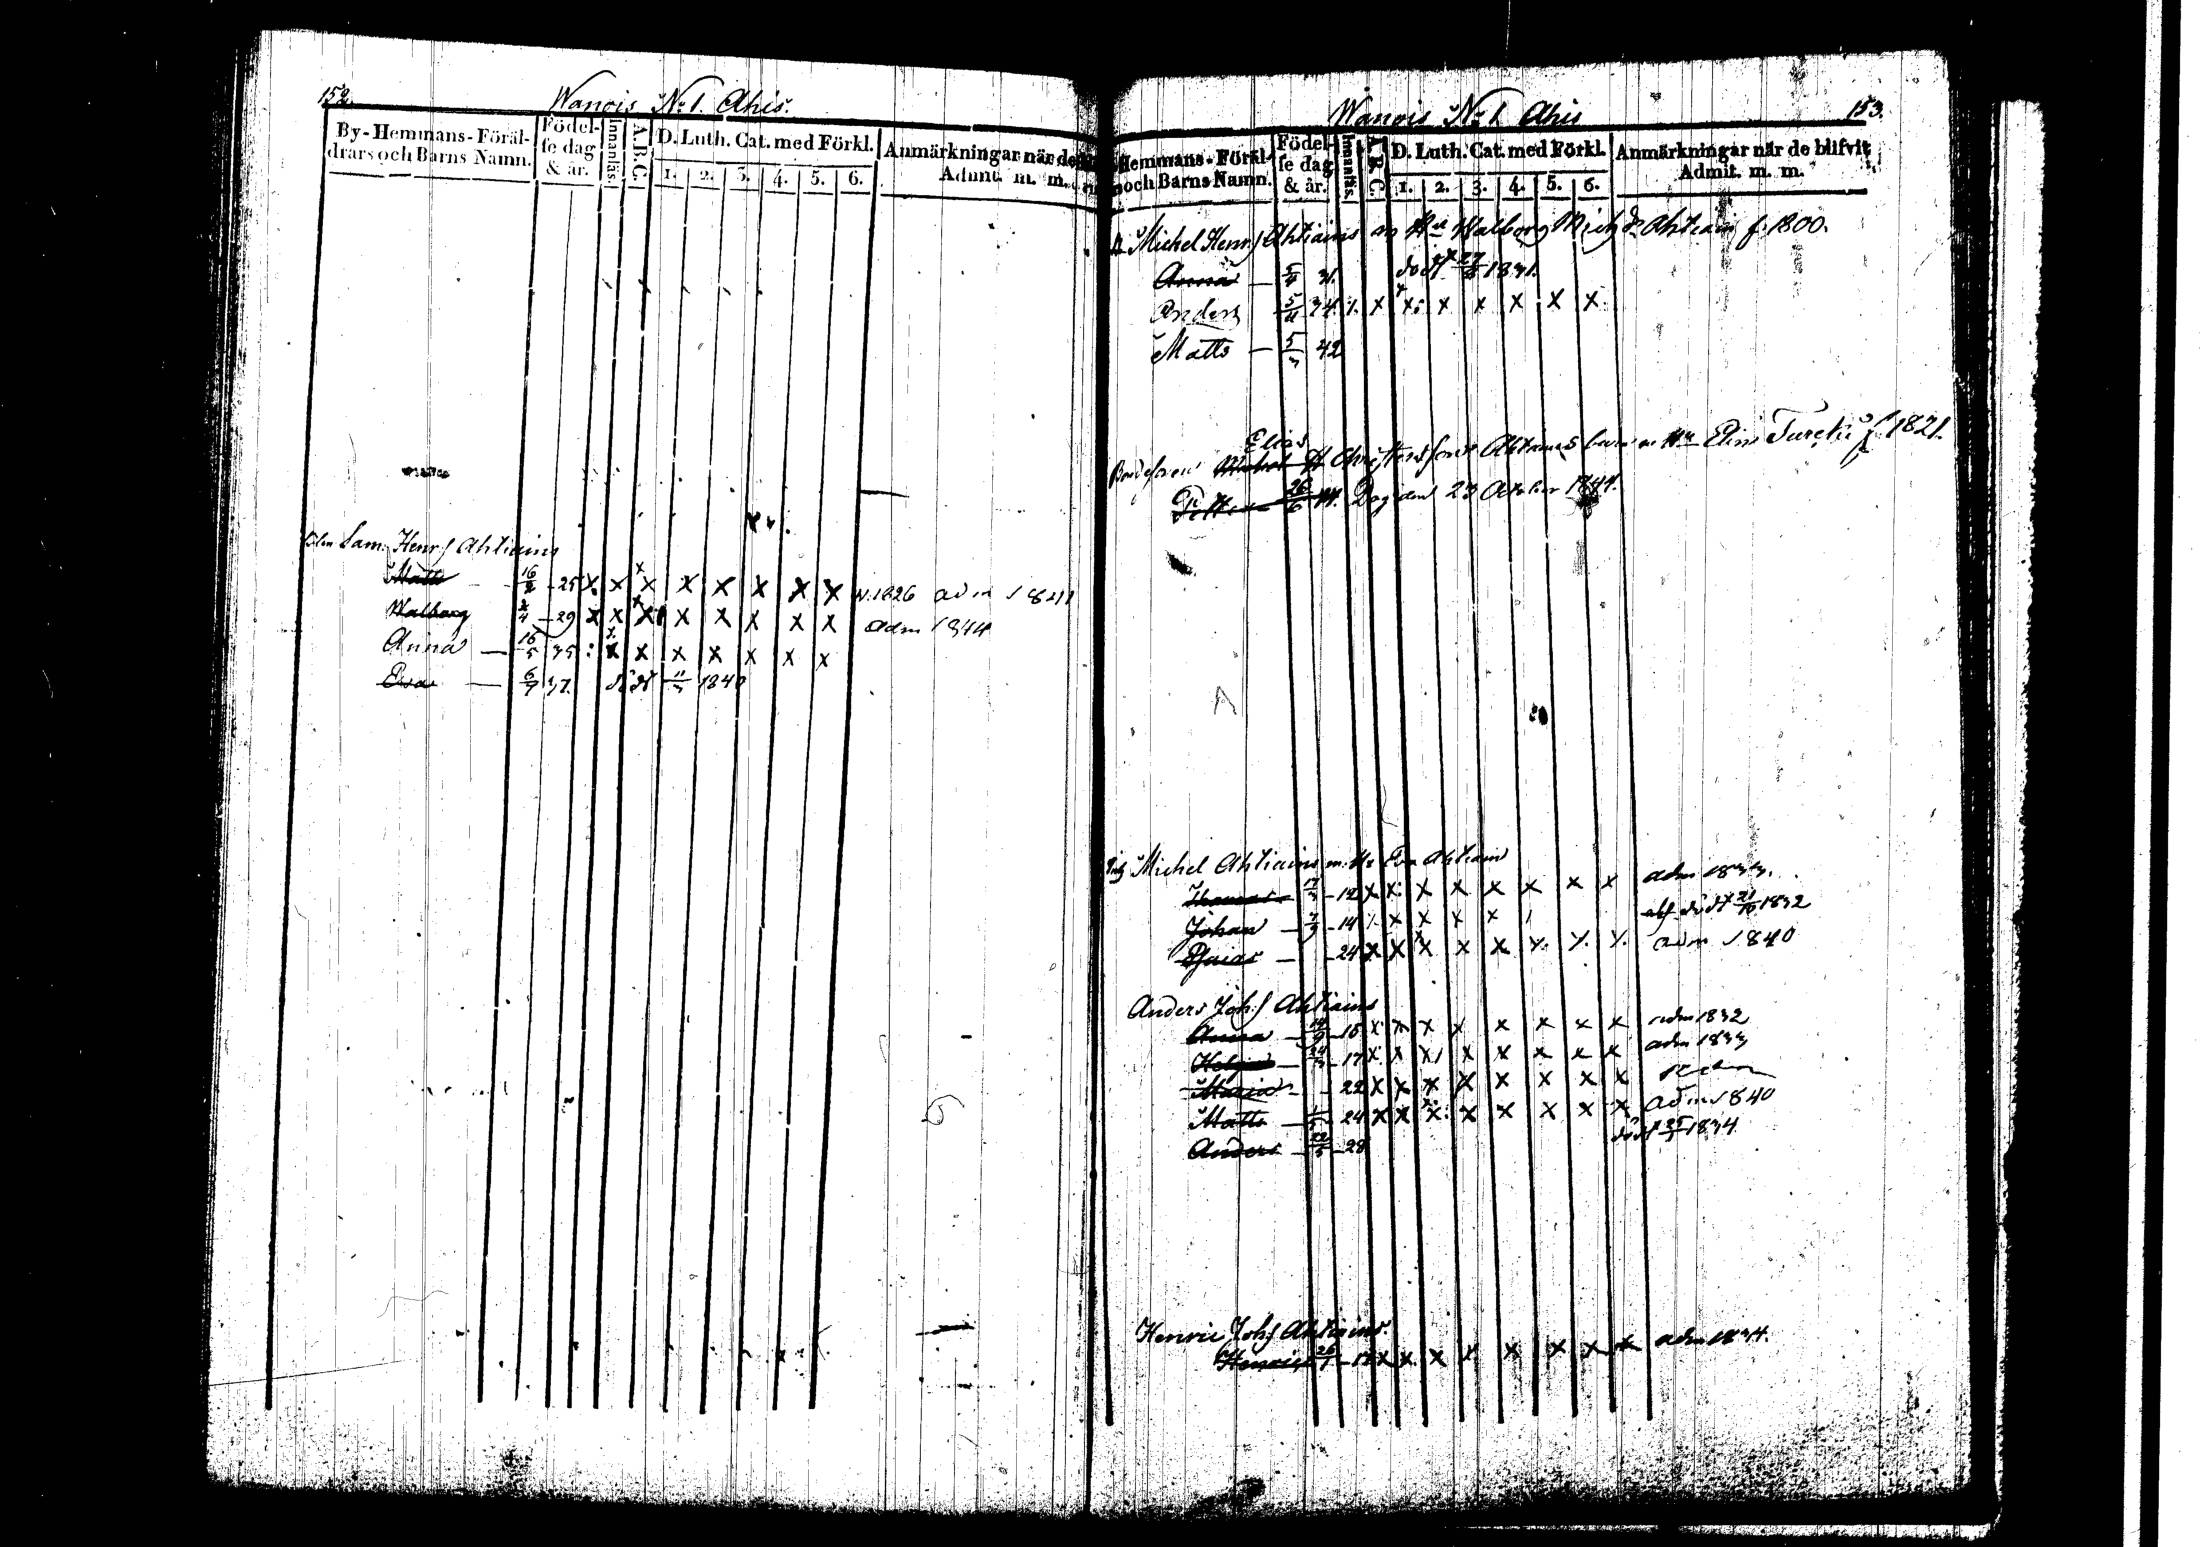 152.
Wanois No 1. Ahis.
By-Hemmans-Föräl-
drars och Barns Namn.
Födel-
se dag
& år.
Innanläs.
A.B.C.
D. Luth. Cat. med Förkl.
1. 2. 3. 4. 5. 6.
Anmärkningar när de
Admit. m. m.
Sam. Henr:s Ahtiains
Matts 16/2 - 25 x x x x x x x x 1826 adm 1841
Walborg 2/4 - 29 x x x x x x x x adm 1844
Anna — 15/5 35 : x x x x x x x
Eva — 6/7 37. död 11/3 1840
153.
Wanois No 1 Ahis
Hemmans-Föräl-
och Barns Namn.
Födel-
se dag
& år.
Innanläs.
A.B.C.
D. Luth. Cat. med Förkl.
1. 2. 3. 4. 5. 6.
Anmärkningar när de blifvit
Admit. m. m.
Michel Henr:s Ahtiains m Hu Walborg Mich:dr Ahtiain f. 1800.
Anna — 31. död 1831.
Anders 5/11 34. x x x x x x x
Matts — 5/3 42
Elias
Michel Christers son Ahtiains m Hu Elin Turcki f 1821.
Petter 26/6 44. Dog den 23 October 1844.
Michel Ahtiains m. Hu Eva Ahtiain
Thomas 17/3 - 12 x x x x x x x x adm 1833.
Johan — - 14 x x x x död 21/10 1832
Esaias — - 24 x x x x x x x x adm 1840
Anders Joh:s Ahtiains
Anna — 14/9 - 15 x x x x x x x x adm 1832
Helena — 24/3 - 17 x x x x x x x x adm 1833
Maria - - 22 x x x x x x x x
Matts — 24 x x x x x x x x adm 1840
Anders — 22/5 - 28 död 25/1 1834
Henric Joh:s Ahtiains.
Henric 26/1 - x x x x x x x x adm 1834.